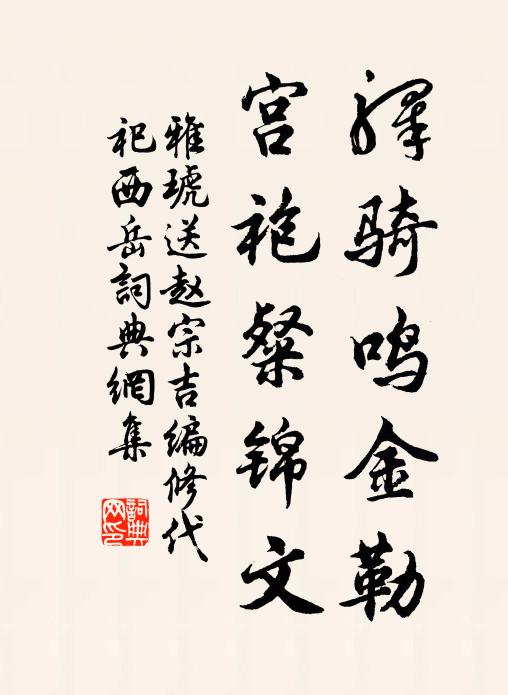 驛骑鸣金勒
宫袍粲锦文
雅琥送赵宗吉編修代
祀西岳詞典網集
詞典网印